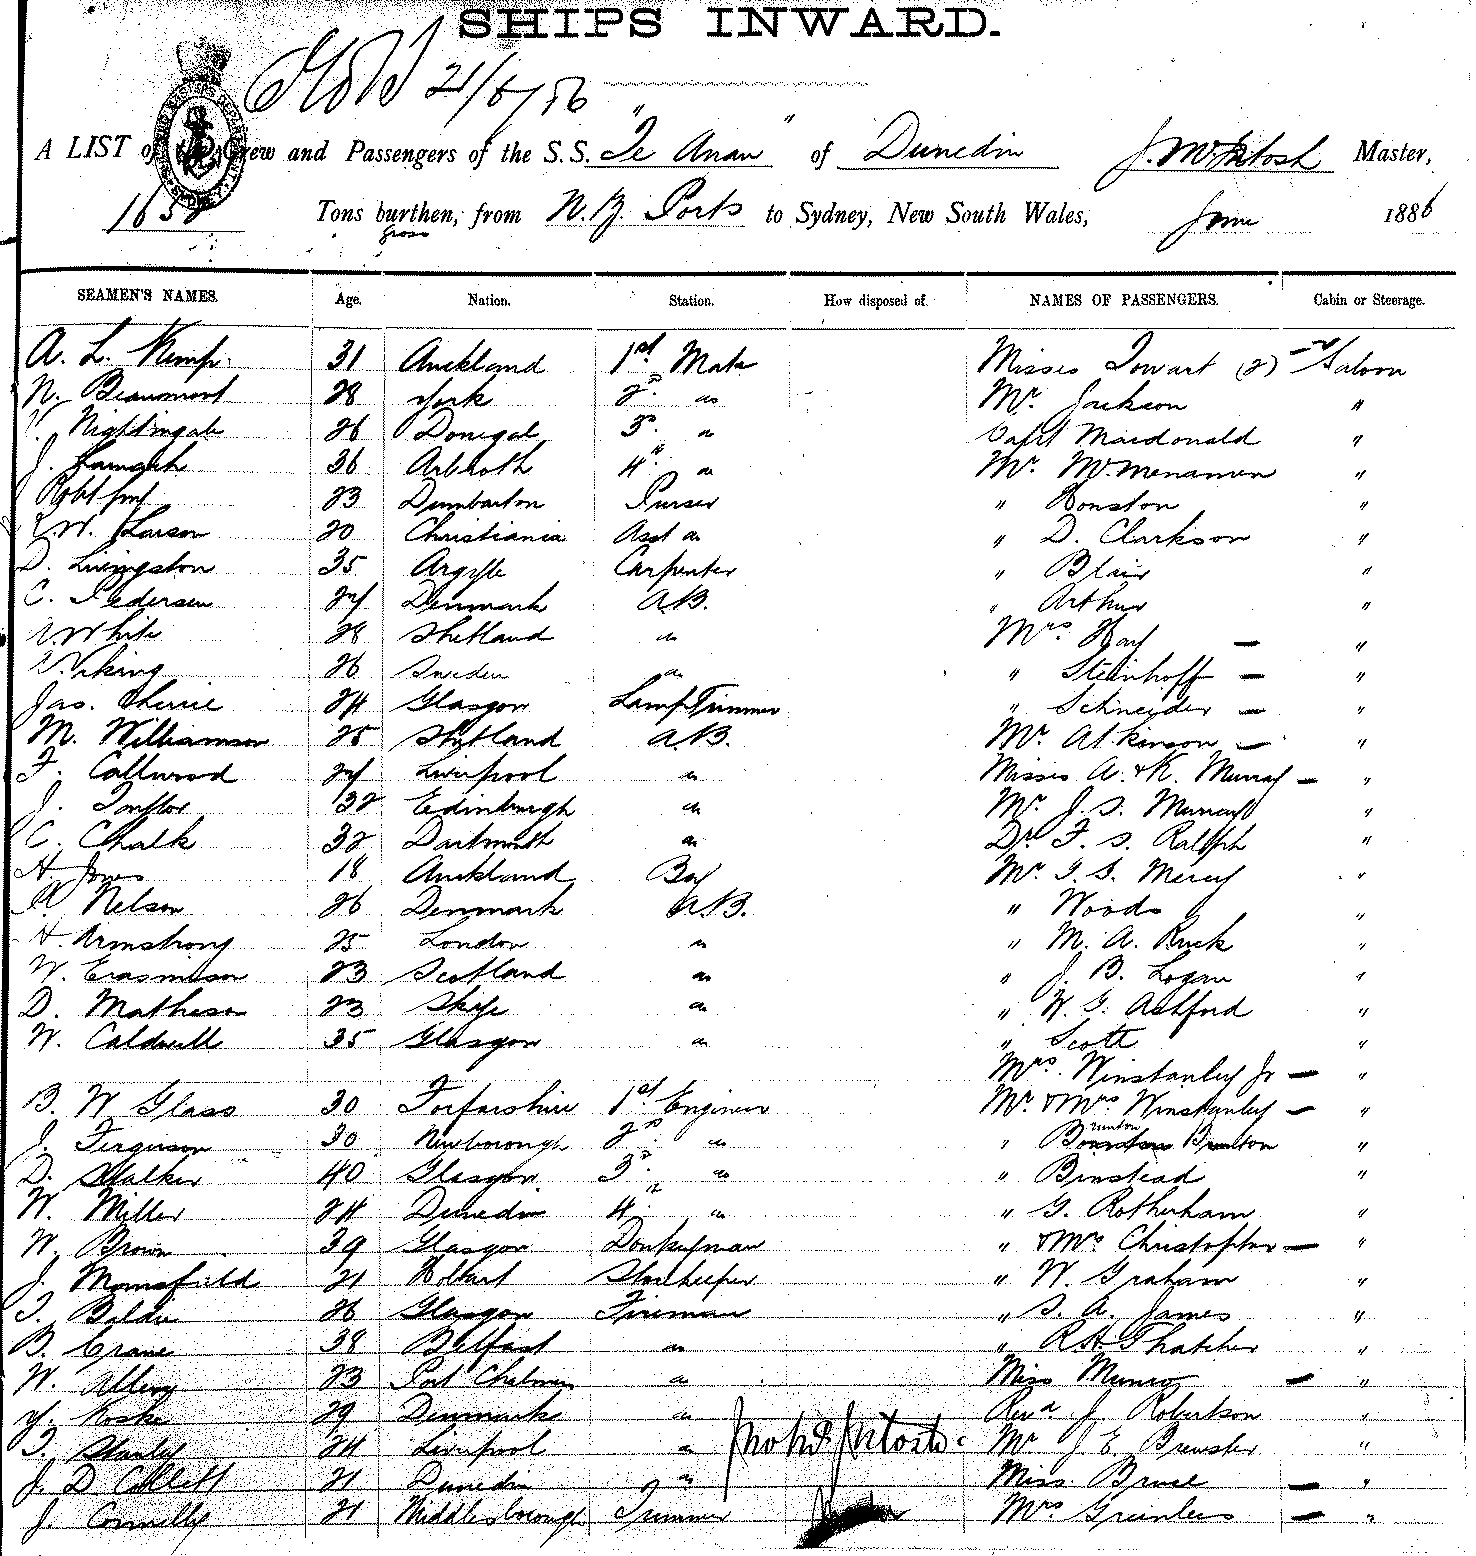 SHIPS INWARD.
21/6/86
A LIST of the Crew and Passengers of the S.S. "Te Anau" of Dunedin J. McIntosh Master,
1652 Tons burthen, from N.Z. Ports to Sydney, New South Wales, June 1886
Gross
SEAMEN'S NAMES. Age. Nation. Station. How disposed of. NAMES OF PASSENGERS. Cabin or Steerage.
A. L. Kemp 31 Auckland 1st Mate Misses Towart (2) — Saloon
N. Beaumont 28 York 2nd do Mr. Jackson "
Nightingale 26 Donegal 3rd do Capt Macdonald "
J. 36 Arbroath 4th do Mr. McMenamen "
Robt 23 Dumbarton Purser " Houston "
W. Larson 20 Christiania Asst do " D. Clarkson "
D. Livingston 35 Argyle Carpenter " Blair "
C. Pedersen 24 Denmark A.B. " Arthur "
White 28 Shetland do Mrs Hay — "
Viking 26 Sweden do " Steinhoff — "
Jas. 24 Glasgow Lamp Trimmer " Schneider — "
M. Williamson 25 Shetland A.B. Mr. Atkinson — "
F. Callwood 24 Liverpool do Misses A. & K. Murray — "
J. Taylor 32 Edinburgh do Mr J. S. Murray "
C. Chalk 32 Dartmouth do Dr. F. S. Ralph "
H. Jones 18 Auckland Boy Mr. Mercy "
A. Nelson 26 Denmark A.B. " Woods "
H. Armstrong 25 London do " M. A. Ruck "
W. Erasmuson 23 Scotland do " J. B. Logan "
D. Matheson 23 Skye do " W. G. Ashford "
W. Caldwell 35 Glasgow do " Scott "
Mrs. Winstanley Jr — "
B. W Glass 30 Forfarshire 1st Engineer Mr. & Mrs Winstanley — "
J. Ferguson 30 Newborough 2nd do " Brunton "
D. Stalker 40 Glasgow 3rd do " Binstead "
W. Miller 24 Dunedin 4th do " G. Rotherham "
W. Brown 39 Glasgow Donkeyman " & Mrs Christopher — "
J. Mansfield 21 Hobart Storekeeper " W. Graham "
T. Baldie 26 Glasgow Fireman " S. A. James "
B. Crane 38 Belfast do " R H Thatcher "
W. 23 Port Chalmers do Miss Munro — "
Y. Koske 29 Denmark do Revd. J Robertson "
T. Stanley 24 Liverpool do Mr J E Brewster "
J. D Collett 21 Dunedin do Miss Bruce — "
J. Connelly 21 Middlesborough Trimmer Mrs Greenlees — "